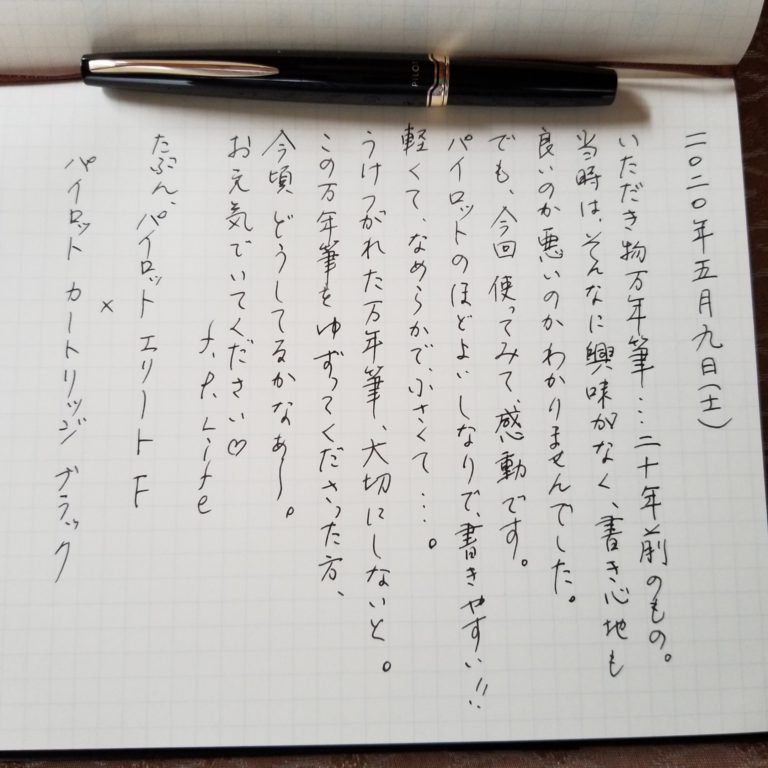 PILOT
二〇二〇年五月九日(土)
いただき物万年筆…二十年前のもの。
当時は、そんなに興味がなく、書き心地も
良いのか悪いのかわかりませんでした。
でも、今回使ってみて、感動です。
パイロットのほどよいしなりで、書きやすい!!
軽くて、なめらかで、小さくて…。
うけつがれた万年筆、大切にしないと。
この万年筆をゆずってくださった方、
今頃どうしてるかなあ〜。
お元気でいてください♡
f.p.Life
たぶん、パイロット エリート F
×
パイロット カートリッジ ブラック